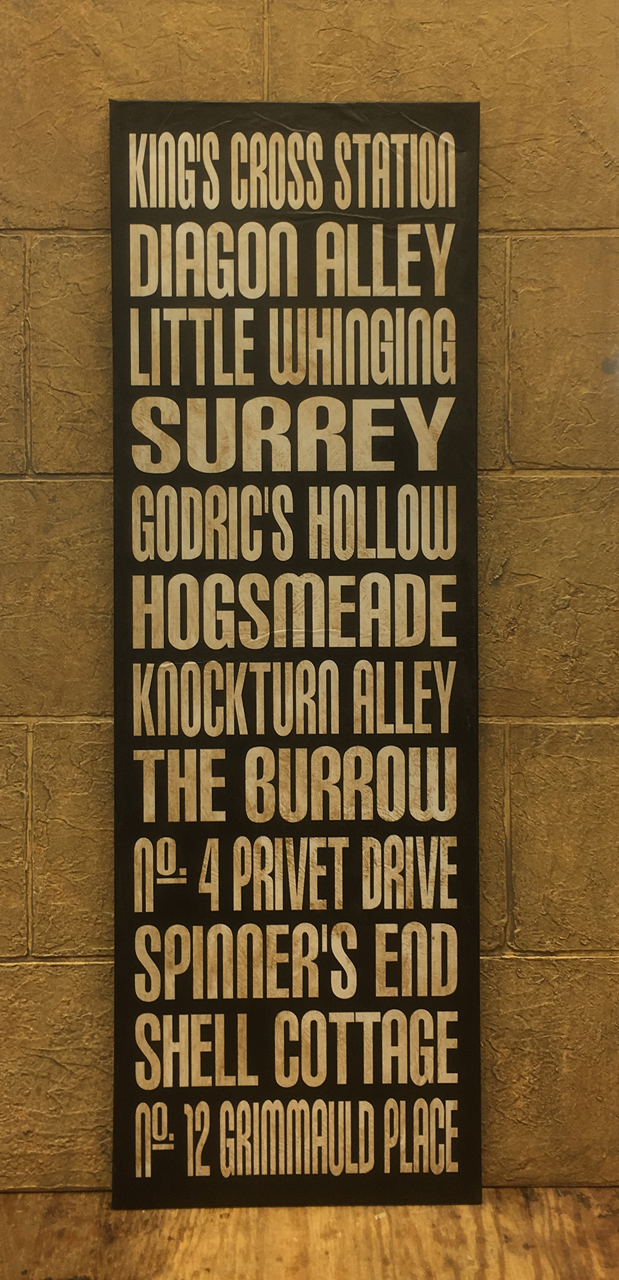 KING'S CROSS STATION
DIAGON ALLEY
LITTLE WHINGING
SURREY
GODRIC'S HOLLOW
HOGSMEADE
KNOCKTURN ALLEY
THE BURROW
Nº. 4 PRIVET DRIVE
SPINNER'S END
SHELL COTTAGE
Nº. 12 GRIMMAULD PLACE